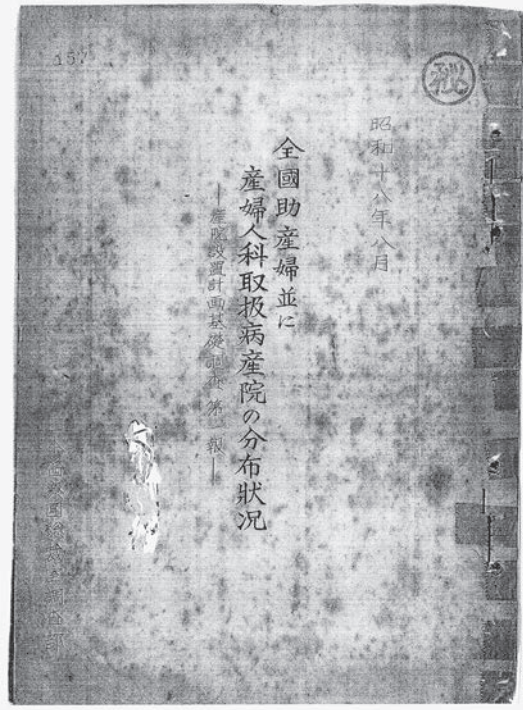 157
㊙
昭和十八年八月
全國助産婦並に
産婦人科取扱病産院の分布狀況
―産院設置計画基礎調査第一報―